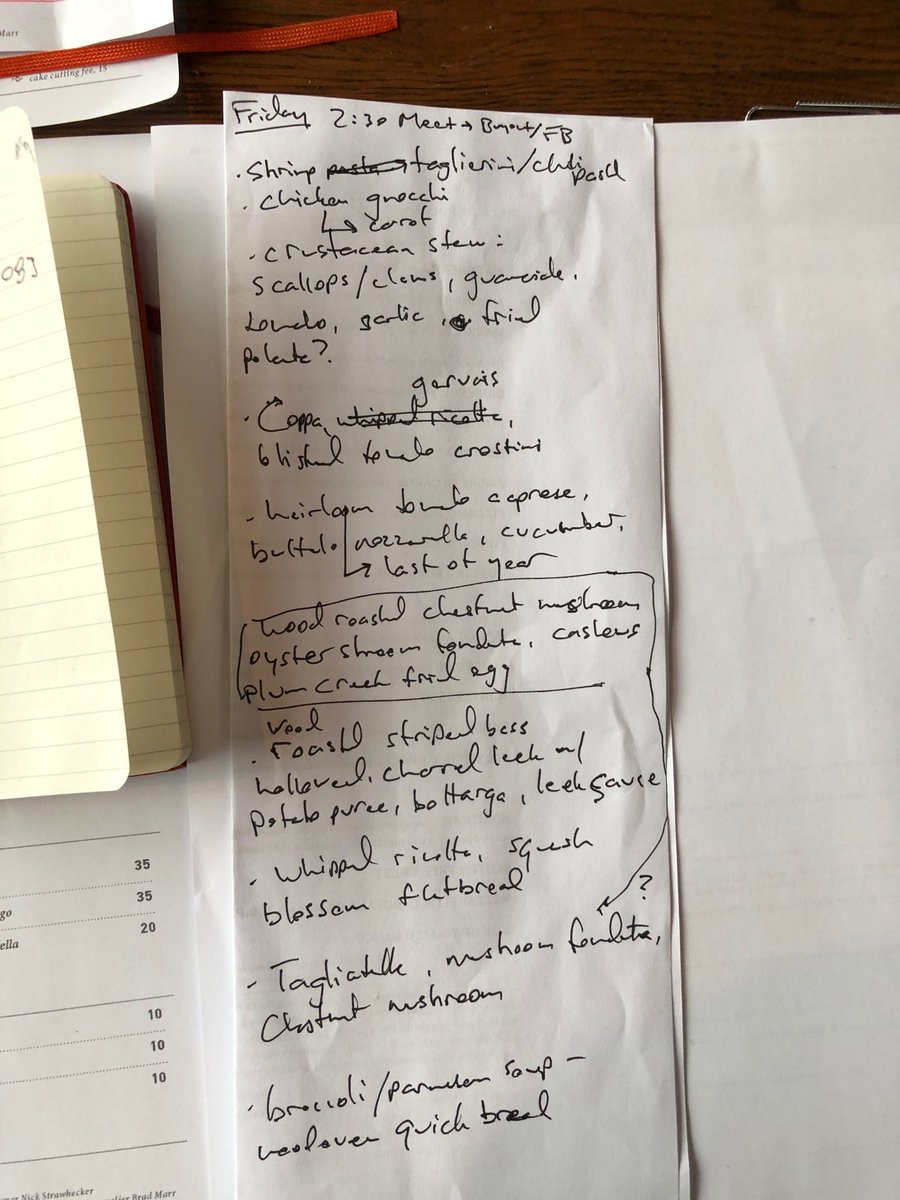 Marr
cake cutting fee, 15
Friday 2:30 Meet → Buyout/FB
• Shrimp pasta taglierini/chili
basil
• chicken gnocchi
↳ carot
• crustacean stew:
scallops/clams, guanciale,
tomato, garlic, fried
polenta?
gervais
• Coppa, whipped ricotta,
blistered tomato crostini
- heirloom tomato caprese,
buffalo mozzarella, cucumber,
↳ last of year
Wood roasted chestnut mushroom
oyster shroom fonduta, cashews
plum creek fried egg
wood
• roasted striped bass
hollowed, charred leek w/
potato puree, bottarga, leek sauce
- Whipped ricotta, squash
blossom flatbread
?
- Tagliatelle, mushroom fonduta,
Chestnut mushroom
• broccoli/parmesan soup –
quick bread
35
go 35
ella 20
10
10
10
ner Nick Strawhecker
elier Brad Marr